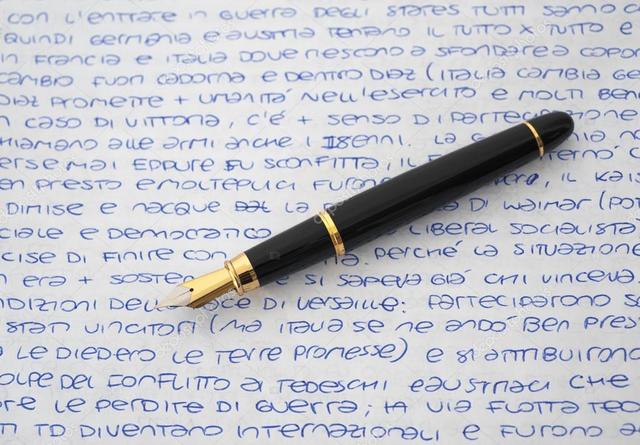 CON L'ENTRATE IN GUERRA DEGLI STATES TUTTI SANNO C
QUINDI GERMANIA E AUSTRIA TENTANO IL TUTTO X TUTTO E
IN FRANCIA E ITALIA DOVE RIESCONO A SFONDARE A CAPO
CAMBIO FUORI CADORNA E DENTRO DIAZ (ITALIA CAMBIA GE
DIAZ PROMETTE + UMANITÀ NELL'ESERCITO E MOLTI BEN
N CASO DI VITTORIA, C'È + SENSO DI PARTECIPAZIONE
HIAMANO ALLE ARMI ANCHE I 18ENNI. LA
ERSE MAI EPPURE FU SCONFITTA, IL
EN PRESTO E MOLTEPLICI FURONO IL KAI
DIMISE E NACQUE LA DI WEIMAR (POT
CIALE E DEMOCRATICO LIBERAL SOCIALISTA
CISE DI FINIRE CON PERCHÉ LA SITUAZIONE
N ERA + SOSTEN E SI SAPEVA GIÀ CHI VINCEVA
NDIZIONI DELLA PACE DI VERSAILLE: PARTECIPARONO S
STATI VINCITORI (MA ITALIA SE NE ANDÒ BEN PRES
A LE DIEDERO LE TERRE PROMESSE) E SI ATTRIBUIRONO
OLPE DEL CONFLITTO AI TEDESCHI E AUSTRIACI CHE
RE LE PERDITE DI GUERRA; VIA FLOTTA TED
TI TD DIVENTANO INTERNAZIONALI E FURONO A